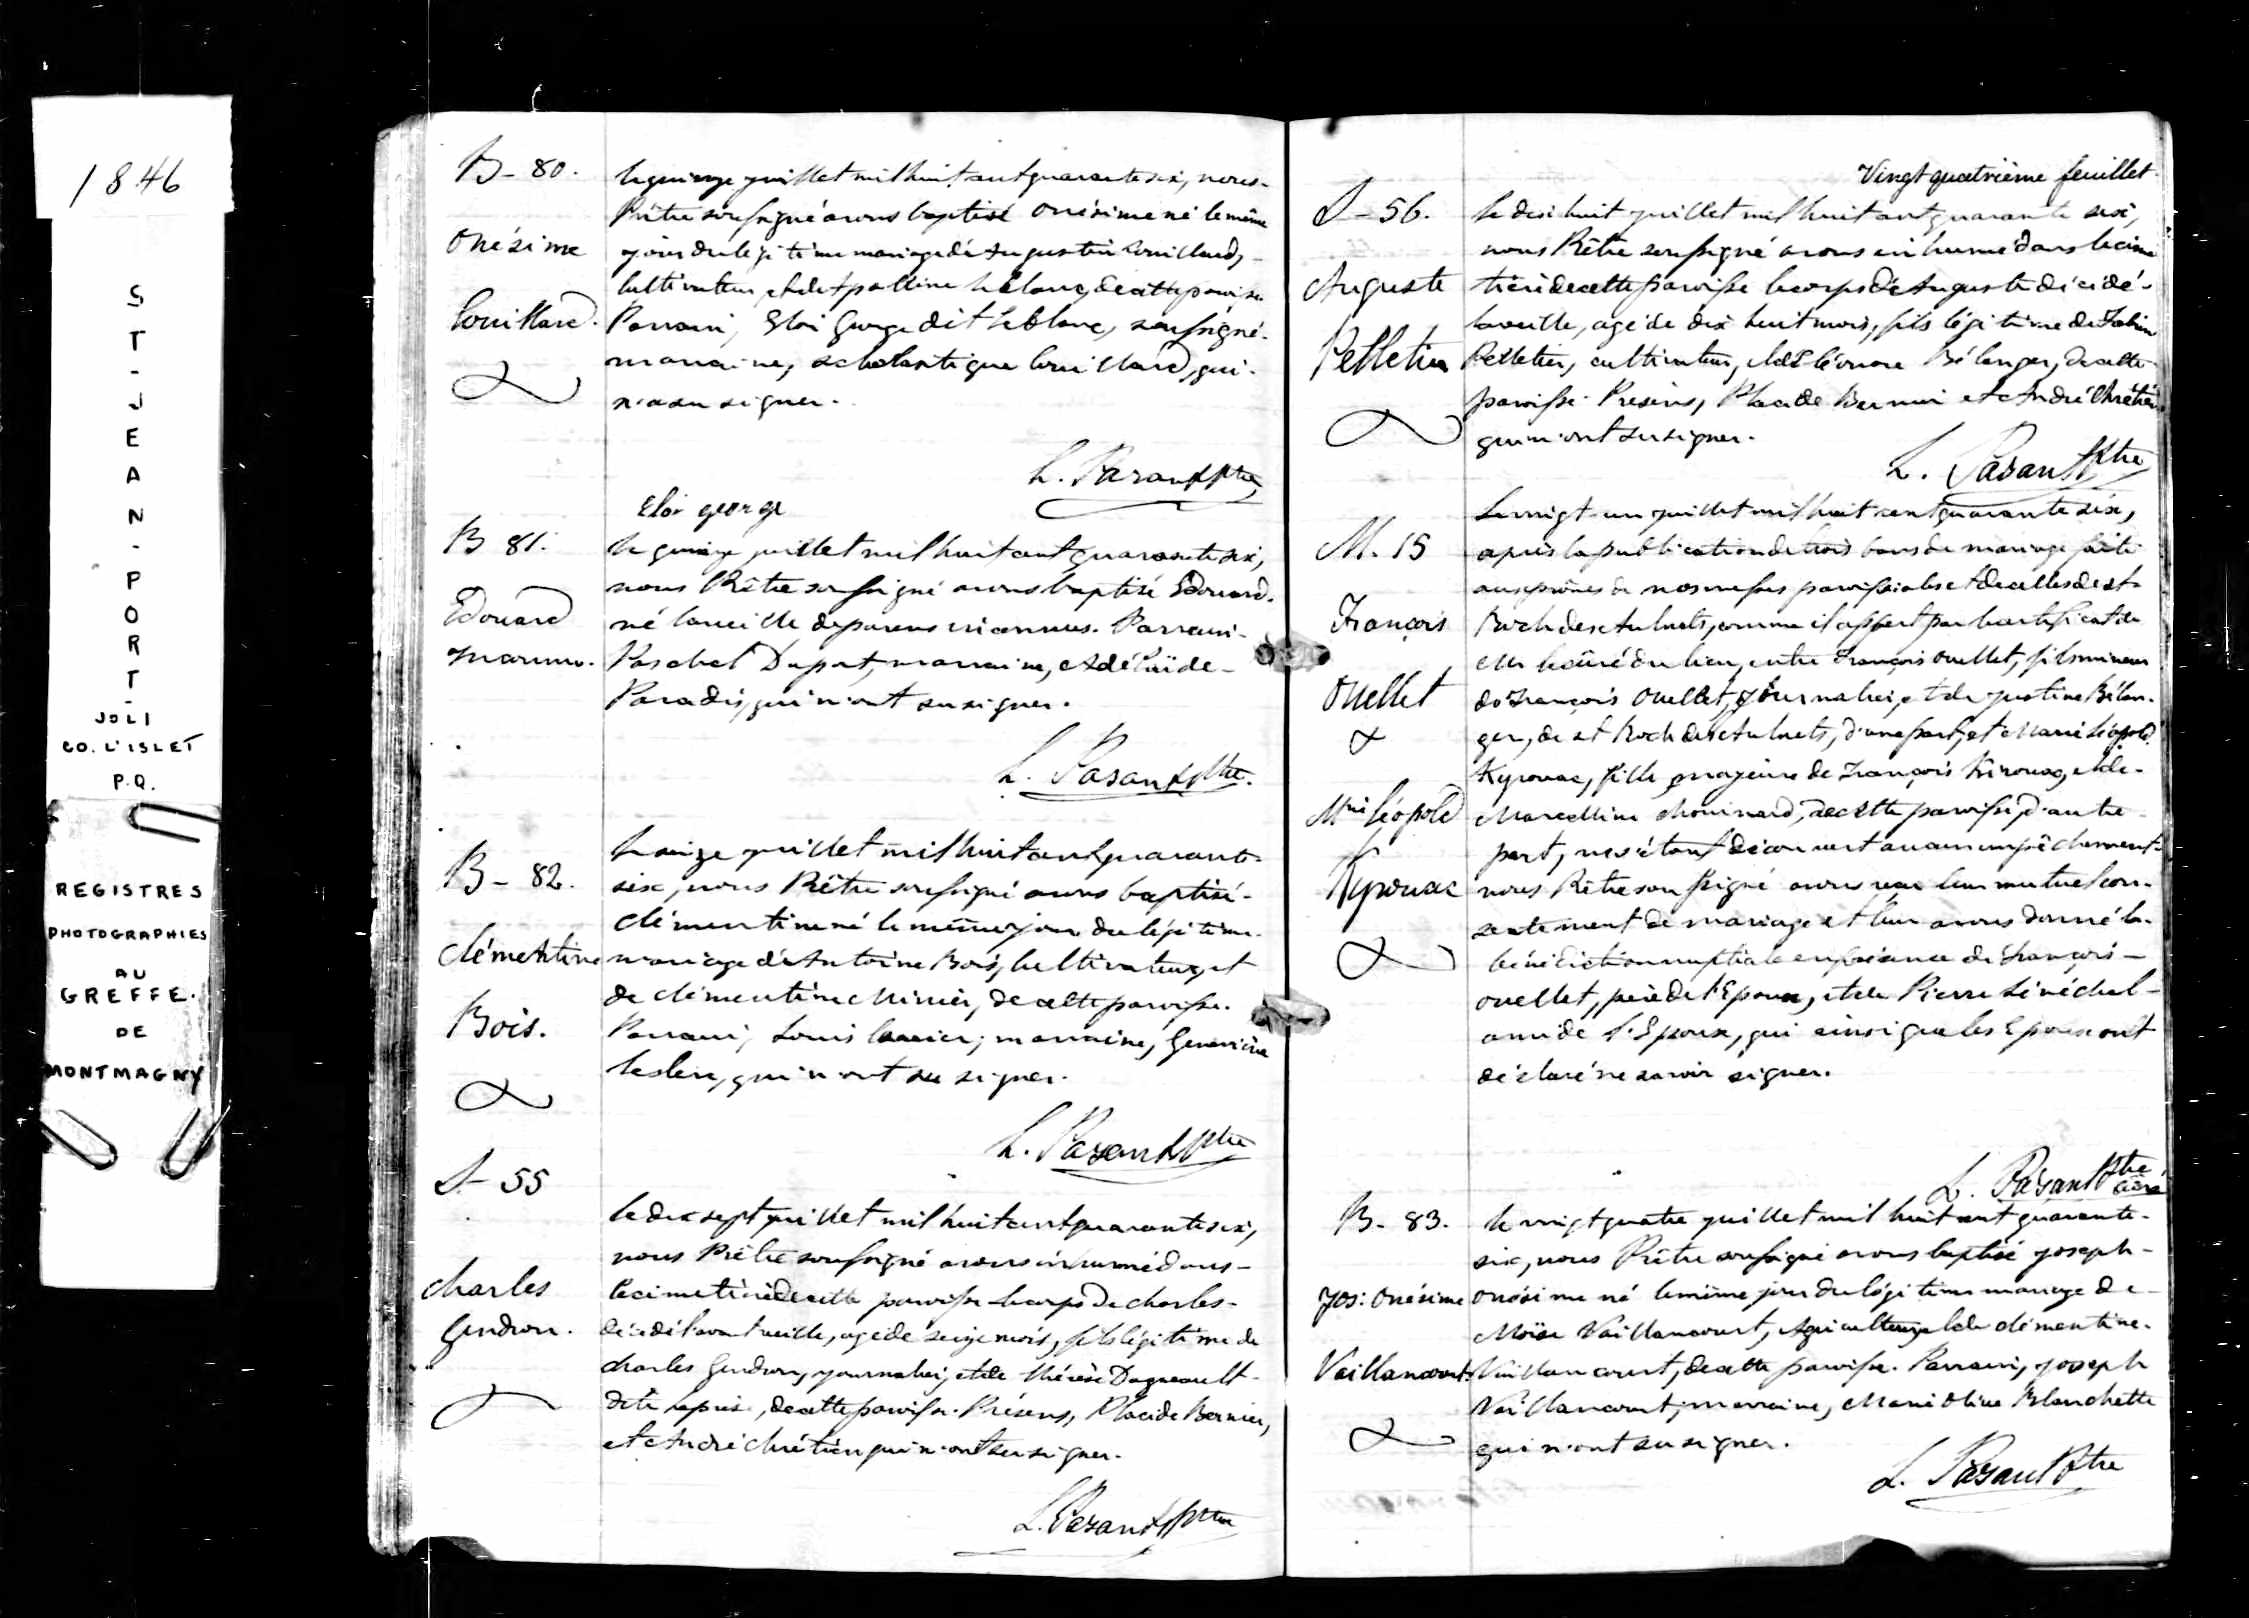 1846
ST-JEAN-PORT-
JOLI
CO. L'ISLET
P.Q.
REGISTRES
PHOTOGRAPHIES
AU
GREFFE
DE
MONTMAGNY
B- 80.
Onésime
Couillard.
Le quinze juillet mil huit cent quarante six, nous
Prêtre soussigné avons baptisé Onésime né le même
jour du légitime mariage de Augustin Couillard,
cultivateur, et de Apolline Leblanc, de cette paroisse
Parrain, Eloi George dit Leblanc, soussigné
marraine, Scholastique Couillard, qui
n'a su signer.
L. Parant Ptre
Eloi george
B 81.
Edouard
inconnu.
Le quinze juillet mil huit cent quarante six,
nous Prêtre soussigné avons baptisé Edouard
né la veille de parens inconnus. Parrain
Paschal Duport, marraine, Adélaïde
Paradis, qui n'ont su signer.
L. Parant Ptre.
B- 82.
Clémentine
Bois.
Le seize juillet mil huit cent quarante
six, nous Prêtre soussigné avons baptisé
Clémentine né le même jour du légitime
mariage d'Antoine Bois, cultivateur, et
de Clémentine Minier, de cette paroisse.
Parrain, Louis ; marraine, Geneviève
Leclerc, qui n'ont su signer.
L. Parant Ptre
S- 55
Charles
Gendron.
Le dix sept juillet mil huit cent quarante six,
nous Prêtre soussigné avons inhumé dans
le cimetière de cette paroisse le corps de Charles
décédé l'avant veille, agé de seize mois, fils légitime de
Charles Gendron, journalier, et de Thérèse Dagneault
dite , de cette paroisse. Présens, Placide Bernier,
et André Chrétien qui n'ont su signer.
L. Parant Ptre
Vingt quatrième feuillet
S- 56.
Auguste
Pelletier
Le dix huit juillet mil huit cent quarante six,
nous Prêtre soussigné avons inhumé dans le cime
tière de cette paroisse le corps de Auguste décédé
la veille, agé de dix huit mois, fils légitime de Fabien
Pelletier, cultivateur, et de Eléonore Bélanger, de cette
paroisse. Présens, Placide Bernier et André Chrétien
qui n'ont su signer.
L. Parant Ptre
M. 15
François
Ouellet
&
Mrie Léopold
Kyrouac
Le vingt-un juillet mil huit cent quarante six,
après la publication de trois bans de mariage faite
aux prônes de nos messes paroissiales et de celles de St
Roch des Aulnets, comme il appert par le certificat de
Mr le curé du lieu, entre François Ouellet, fils mineur
de François Ouellet, journalier, et de Justine Bélan-
ger, de St Roch des Aulnets, d'une part, et Marie Léopold
Kyrouac, fille majeure de François Kirouac, et de
Marcelline Chouinard, de cette paroisse, d'autre
part, ne s'étant découvert aucun empêchement
nous Prêtre soussigné avons reçu leur mutuel con-
sentement de mariage et leur avons donné la
bénédiction nuptiale en présence de François
Ouellet, père de l'Epoux, et de Pierre Sénéchal
ami de l'Epoux, qui ainsi que les Epoux ont
déclaré ne savoir signer.
L. Parant Ptre
curé
B- 83.
Jos: Onésime
Vaillancourt
Le vingt quatre juillet mil huit cent quarante
six, nous Prêtre soussigné avons baptisé Joseph
Onésime né le même jour du légitime mariage de
Moïse Vaillancourt, Agriculteur, et de Clémentine
Vaillancourt, de cette paroisse. Parrain, Joseph
Vaillancourt; marraine, Marie Olive Blanchette
qui n'ont su signer.
L. Parant Ptre